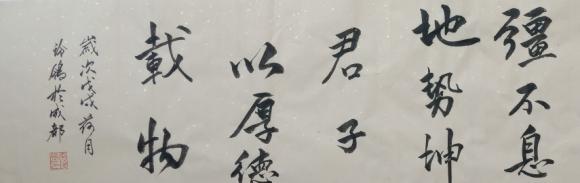 彊不息
地勢坤
君子
以厚德
載物
歲次戊戌荷月
於成都